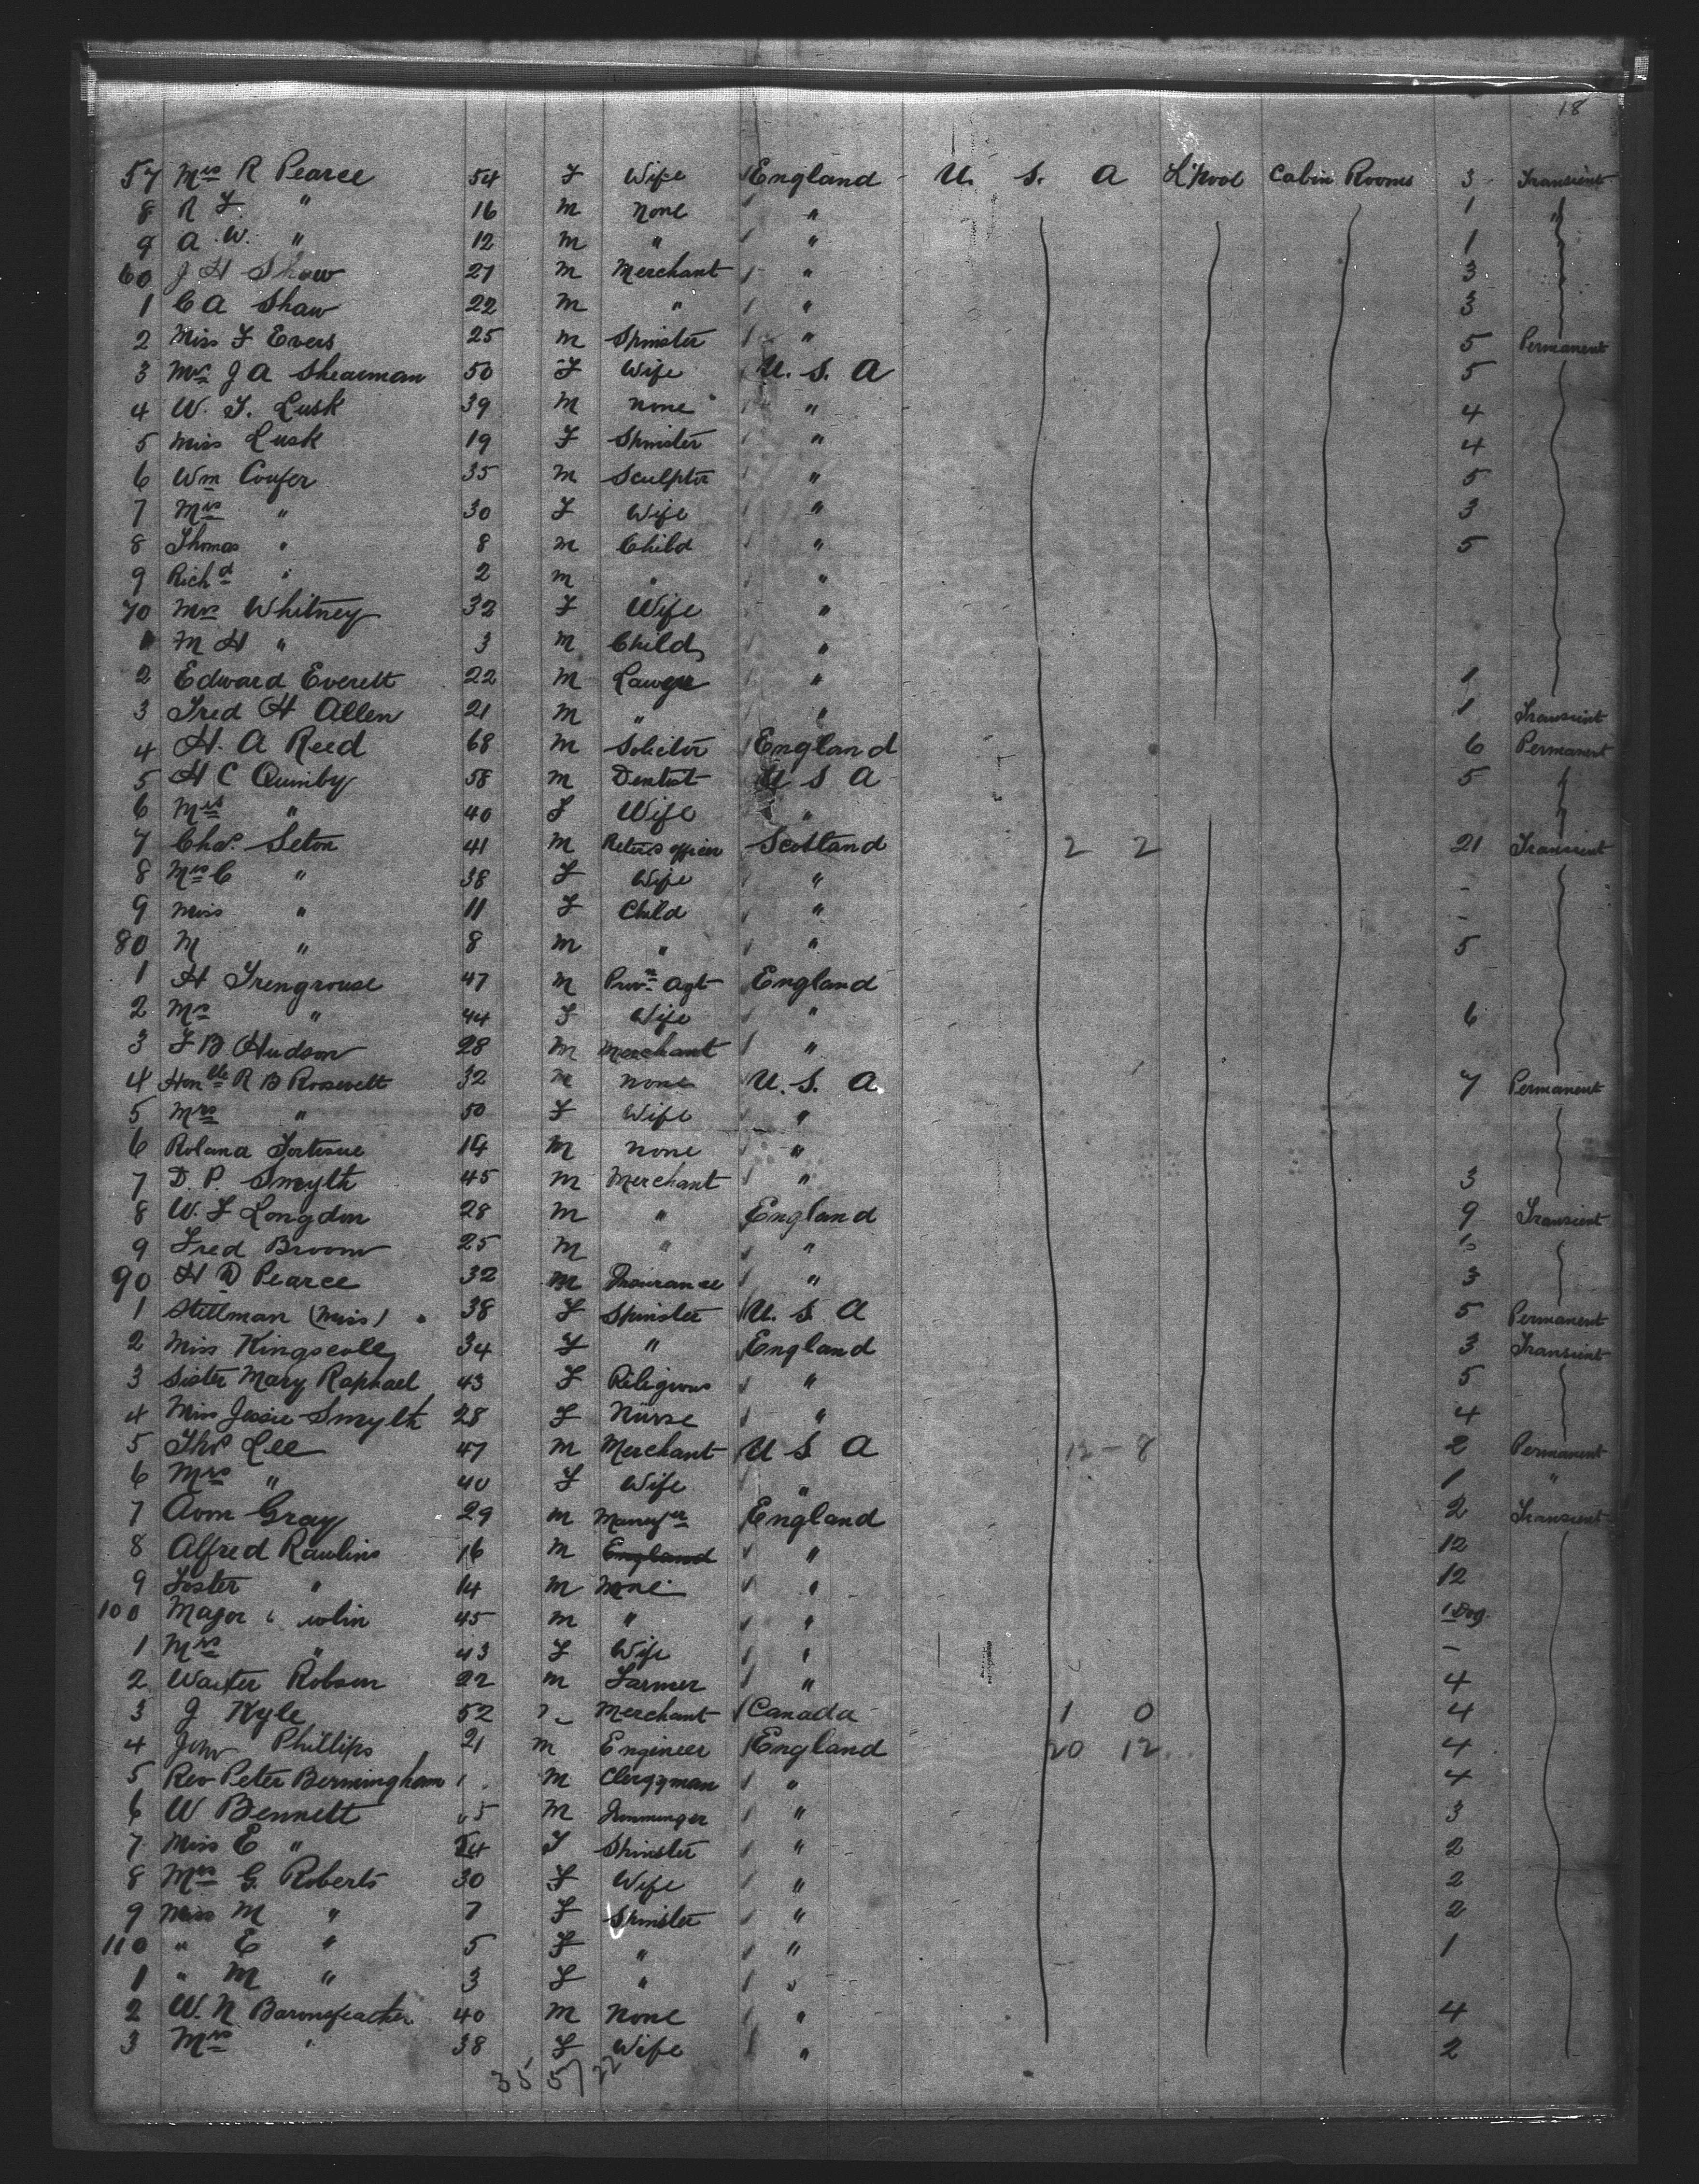 18
57 Mrs R Pearce 54 F Wife England U. S. A L'pool Cabin Rooms 3 Transient
8 R F. " 16 M None " 1 "
9 A. W. " 12 M " " 1
60 J H Shaw 27 M Merchant " 3
1 C A Shaw 22 M " " 3
2 Miss F Evers 25 M Spinster " 5 Permanent
3 Mrs J A Shearman 50 F Wife U. S. A 5
4 W. T. Lusk 39 M None " 4
5 Miss Lusk 19 F Spinster " 4
6 Wm Couper 35 M Sculptor " 5
7 Mrs " 30 F Wife " 3
8 Thomas " 8 M Child " 5
9 Richd " 2 M " "
70 Mrs Whitney 32 F Wife "
1 M H " 3 M Child "
2 Edward Everett 22 M Lawyer " 1
3 Fred H Allen 21 M " " 1 Transient
4 H. A Reed 68 M Solicitor England 6 Permanent
5 H C Quimby 58 M Dentist U S A 5
6 Mrs " 40 F Wife "
7 Chas. Seton 41 M Scotland 2 2 21 Transient
8 Mrs C " 38 F Wife " -
9 Miss " 11 F Child " -
80 M " 8 M " " 5
1 H Trengrouse 47 M Provn Agt England
2 Mrs " 44 F Wife " 6
3 F B Hudson 28 M Merchant "
4 Honble R B Roosevelt 32 M None U. S. A. 7 Permanent
5 Mrs " 50 F Wife "
6 Roland Fortescue 14 M None "
7 D. P. Smyth 45 M Merchant " 3
8 W. F Longdon 28 M " England 9 Transient
9 Fred Broom 25 M " "
90 H D Pearce 32 M Insurance " 3
1 Stillman (Miss) 38 F Spinster U. S. A 5 Permanent
2 Miss Kingscote 34 F " England 3 Transient
3 Sister Mary Raphael 43 F Religious " 5
4 Miss Jessie Smyth 28 F Nurse " 4
5 Thos Lee 47 M Merchant U S A 12 - 8 2 Permanent
6 Mrs " 40 F Wife " 1 "
7 Gray 29 M Manager England 2 Transient
8 Alfred Rawlins 16 M England " 12
9 " 14 M None " 12
100 Major 45 M " " 1 Dog.
1 Mrs " 43 F Wife " -
2 Walter Robson 22 M Farmer " 4
3 J Kyle 52 Merchant Canada 1 0 4
4 John Phillips 21 M Engineer England 20 12 4
5 Rev Peter Bermingham M Clergyman " 4
6 W Bennett M " 3
7 Miss E " F Spinster " 2
8 Mrs G. Roberts 30 F Wife " 2
9 Miss M " 7 F Spinster " 2
110 " E " 5 F " " 1
1 " M " 3 F " "
2 W. N 40 M None " 4
3 Mrs " 38 F Wife " 2
35 57 22